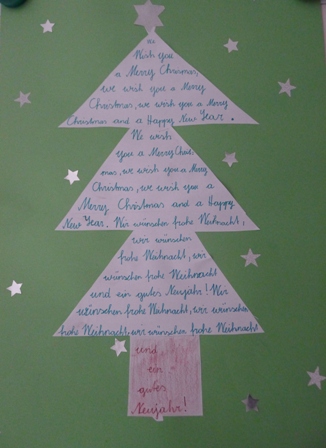 We
Wish you
a Merry Christmas,
we wish you a Merry
Christmas, we wish you a Merry
Christmas and a Happy New Year.
We wish
you a Merry Christ
mas, we wish you a Merry
Christmas, we wish you a
Merry Christmas and a Happy
New Year. Wir wünschen frohe Weihnacht,
wir wünschen
frohe Weihnacht, wir
wünschen frohe Weihnacht
und ein gutes Neujahr! Wir
wünschen frohe Weihnacht, wir wünschen
frohe Weihnacht, wir wünschen frohe Weihnacht
und
ein
gutes
Neujahr!